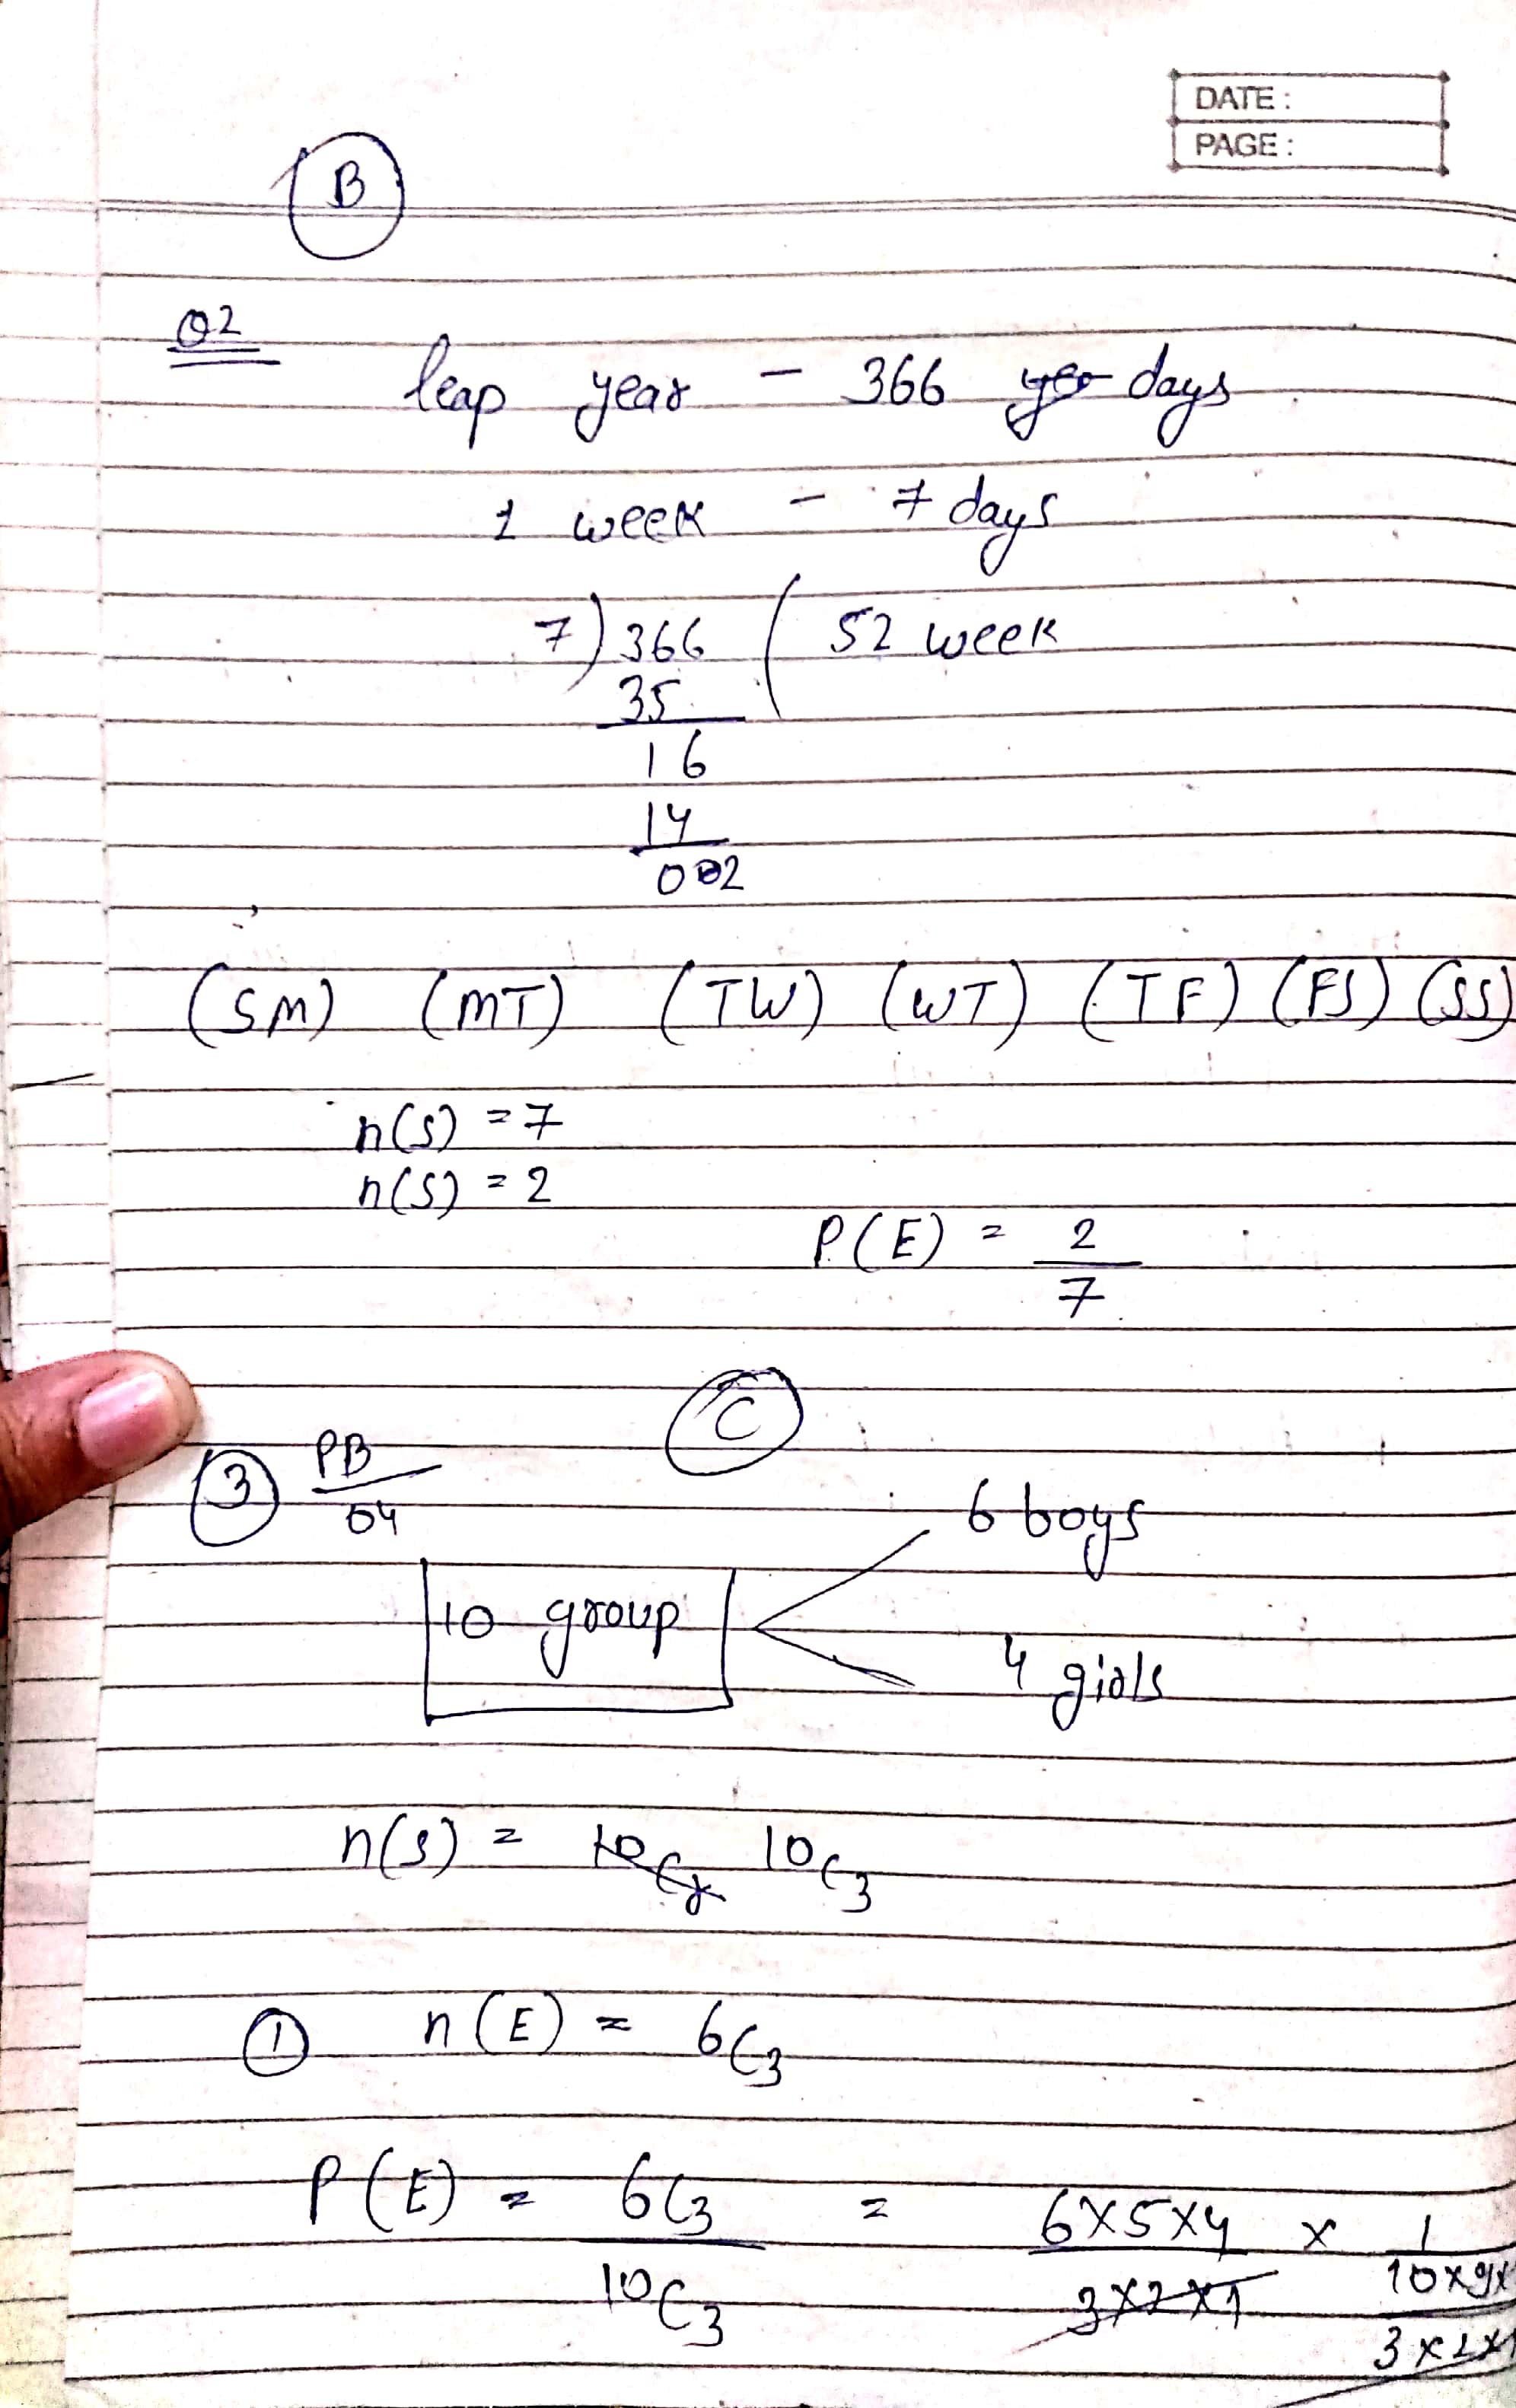 DATE :
PAGE :
B
Q2
leap year - 366 days
1 week - 7 days
7) 366 ( 52 week
35
16
14
002
(SM) (MT) (TW) (WT) (TF) (FS) (SS)
n(S) = 7
n(S) = 2
P(E) = 2/7
C
3 PB/04
6 boys
10 group
4 girls
n(S) = 10C3
1 n(E) = 6C3
P(E) = 6C3/10C3 = 6×5×4/3×2×1 × 1/10×9×/3×2×1